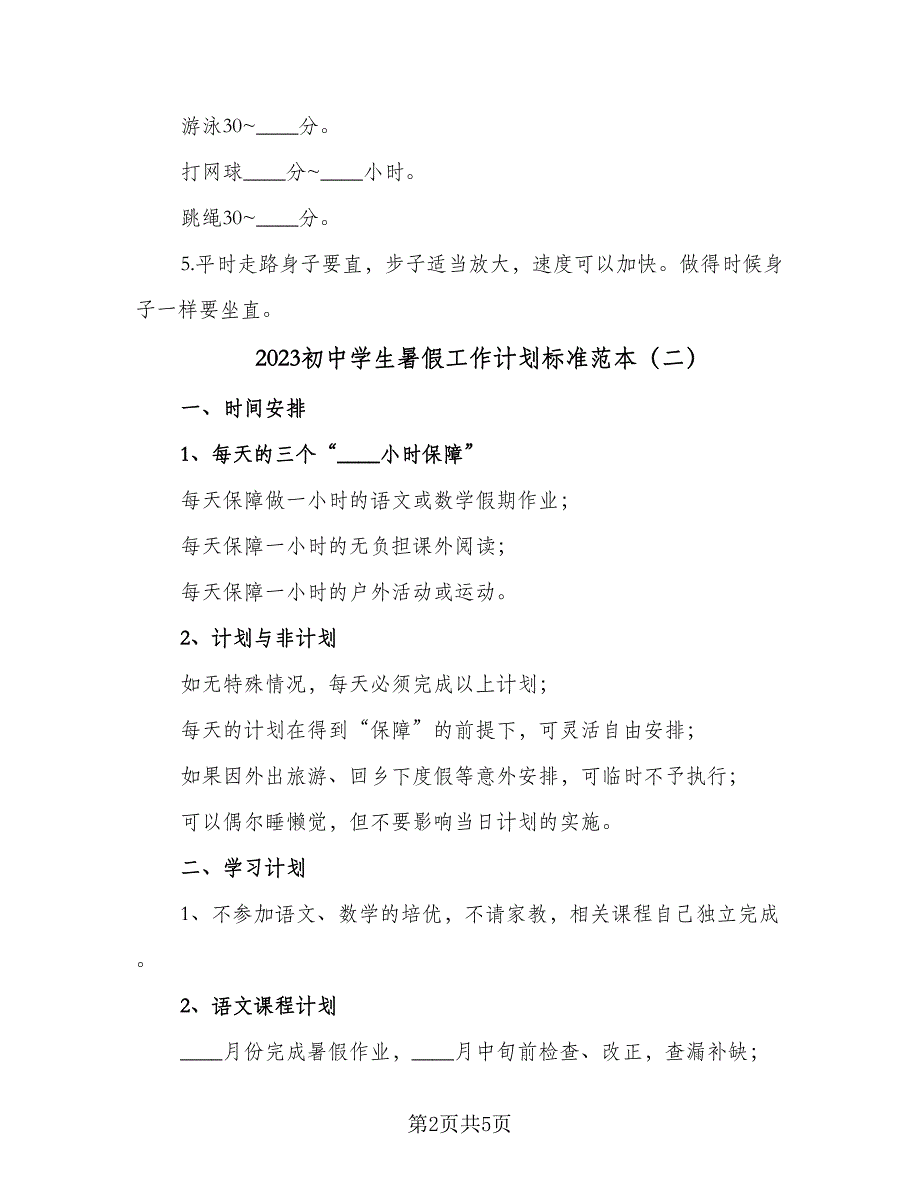 游泳30~____分。
打网球____分~____小时。
跳绳30~____分。
5.平时走路身子要直，步子适当放大，速度可以加快。做得时候身
子一样要坐直。
2023初中学生暑假工作计划标准范本（二）
一、时间安排
1、每天的三个“____小时保障”
每天保障做一小时的语文或数学假期作业；
每天保障一小时的无负担课外阅读；
每天保障一小时的户外活动或运动。
2、计划与非计划
如无特殊情况，每天必须完成以上计划；
每天的计划在得到“保障”的前提下，可灵活自由安排；
如果因外出旅游、回乡下度假等意外安排，可临时不予执行；
可以偶尔睡懒觉，但不要影响当日计划的实施。
二、学习计划
1、不参加语文、数学的培优，不请家教，相关课程自己独立完成
。
2、语文课程计划
____月份完成暑假作业，____月中旬前检查、改正，查漏补缺；
第2页共5页